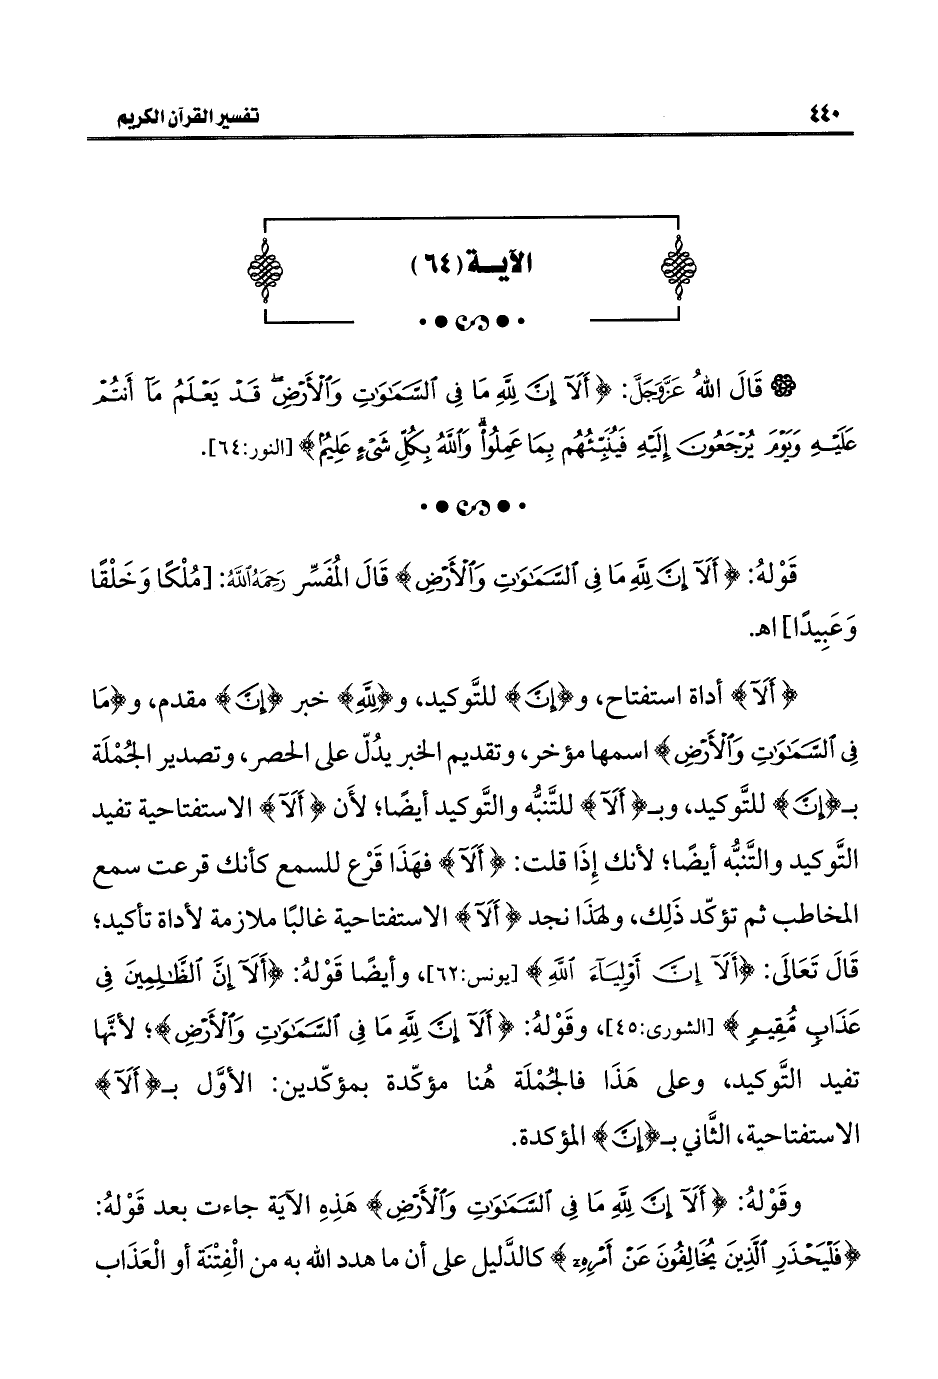 ٤٤٠
تفسير القرآن الكريم
الآيــة (٦٤)
قَالَ اللهُ عَزَّوَجَلَّ: ﴿أَلَآ إِنَّ لِلَّهِ مَا فِي السَّمَٰوَٰتِ وَٱلْأَرْضِ ۖ قَدْ يَعْلَمُ مَآ أَنتُمْ
عَلَيْهِ وَيَوْمَ يُرْجَعُونَ إِلَيْهِ فَيُنَبِّئُهُم بِمَا عَمِلُوا۟ ۗ وَٱللَّهُ بِكُلِّ شَىْءٍ عَلِيمٌۢ﴾ [النور:٦٤].
قَوْلهُ: ﴿أَلَآ إِنَّ لِلَّهِ مَا فِي ٱلسَّمَٰوَٰتِ وَٱلْأَرْضِ﴾ قَالَ المُفَسِّر رَحِمَهُ اللَّهُ: [مُلْكًا وَخَلْقًا
وَعَبِيدًا] اهـ.
﴿أَلَآ﴾ أداة استفتاح، و﴿إِنَّ﴾ للتَّوكيد، و﴿لِلَّهِ﴾ خبر ﴿إِنَّ﴾ مقدم، و﴿مَا
فِي ٱلسَّمَٰوَٰتِ وَٱلْأَرْضِ﴾ اسمها مؤخر، وتقديم الخبر يدُلّ على الحصر، وتصدير الجُمْلَة
بـ﴿إِنَّ﴾ للتَّوكيد، وبـ﴿أَلَآ﴾ للتَّنبُّه والتَّوكيد أيضًا؛ لأَن ﴿أَلَآ﴾ الاستفتاحية تفيد
التَّوكيد والتَّنبُّه أيضًا؛ لأنك إِذَا قلت: ﴿أَلَآ﴾ فهَذَا قَرْع للسمع كأنك قرعت سمع
المخاطب ثم تؤكّد ذَلِك، ولهَذَا نجد ﴿أَلَآ﴾ الاستفتاحية غالبًا ملازمة لأداة تأكيد؛
قَالَ تَعَالَى: ﴿أَلَآ إِنَّ أَوْلِيَآءَ ٱللَّهِ﴾ [يونس:٦٢]، وأيضًا قَوْلهُ: ﴿أَلَآ إِنَّ ٱلظَّٰلِمِينَ فِي
عَذَابٍ مُّقِيمٍ﴾ [الشورى:٤٥]، وقَوْلهُ: ﴿أَلَآ إِنَّ لِلَّهِ مَا فِي ٱلسَّمَٰوَٰتِ وَٱلْأَرْضِ﴾؛ لأنَّها
تفيد التَّوكيد، وعلى هَذَا فالجُمْلَة هُنا مؤكّدة بمؤكّدين: الأوَّل بـ﴿أَلَآ﴾
الاستفتاحية، الثَّاني بـ﴿إِنَّ﴾ المؤكدة.
وقَوْلهُ: ﴿أَلَآ إِنَّ لِلَّهِ مَا فِي ٱلسَّمَٰوَٰتِ وَٱلْأَرْضِ﴾ هَذِهِ الآيَة جاءت بعد قَوْلهُ:
﴿فَلْيَحْذَرِ ٱلَّذِينَ يُخَالِفُونَ عَنْ أَمْرِهِۦٓ﴾ كالدَّليل على أن ما هدد الله به من الْفِتْنَة أو الْعَذَاب